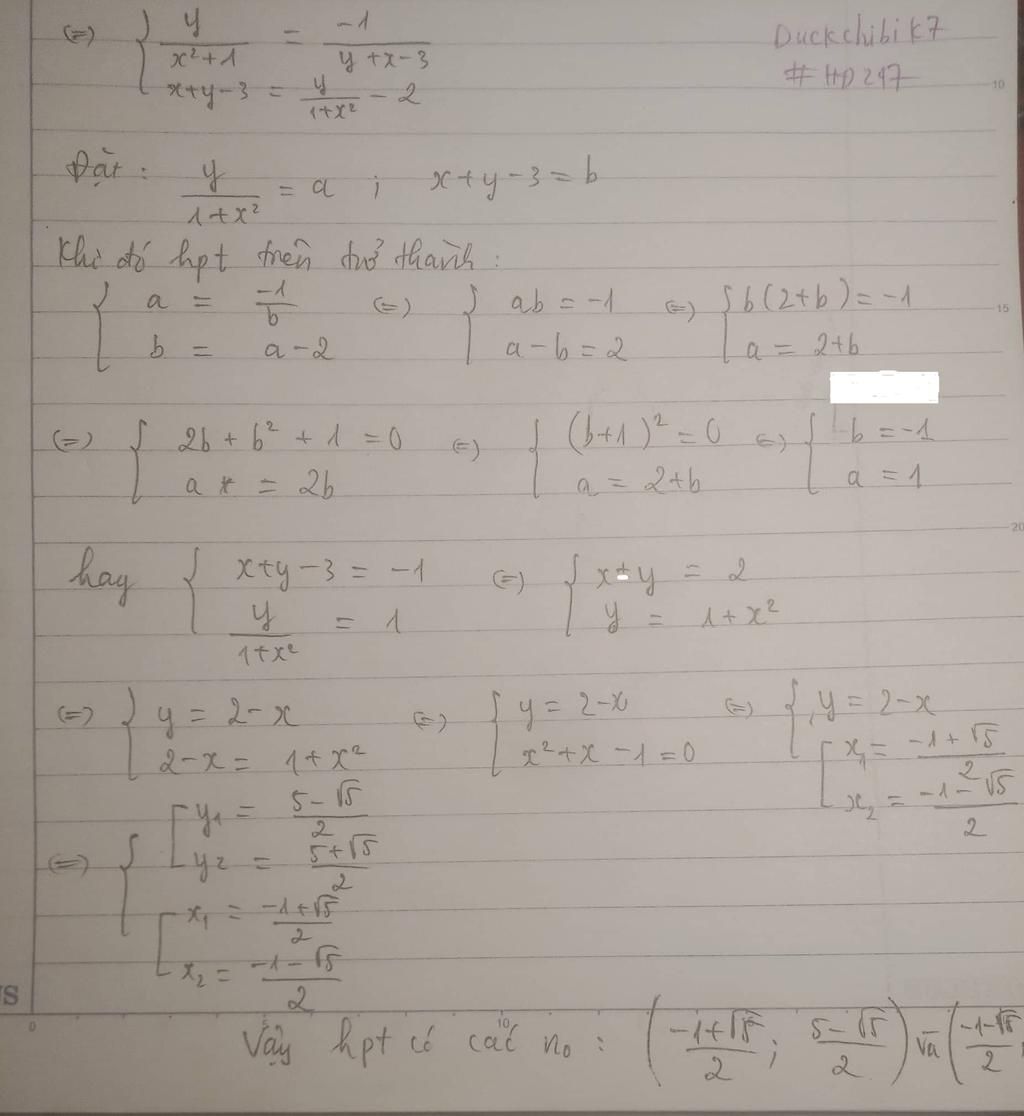 (=) { y/(x²+1) = -1/(y+x-3)
x+y-3 = y/(1+x²) - 2
Duckchibi k7
#HD247
10
Đặt : y/(1+x²) = a ; x+y-3 = b
Khi đó hpt trên trở thành :
{ a = -1/b (=) { ab = -1 (=) { b(2+b) = -1
b = a-2 a-b = 2 a = 2+b
15
(=) { 2b + b² + 1 = 0 (=) { (b+1)² = 0 (=) { b = -1
a = 2b a = 2+b a = 1
20
hay { x+y-3 = -1 (=) { x+y = 2
y/(1+x²) = 1 y = 1+x²
(=) { y = 2-x (=) { y = 2-x (=) { y = 2-x
2-x = 1+x² x²+x-1=0 [ x₁ = (-1+√5)/2
x₂ = (-1-√5)/2
(=) { [ y₁ = (5-√5)/2
y₂ = (5+√5)/2
[ x₁ = (-1+√5)/2
x₂ = (-1-√5)/2
0 5 10
Vậy hpt có các no : ((-1+√5)/2 ; (5-√5)/2) và ((-1-√5)/2 ;